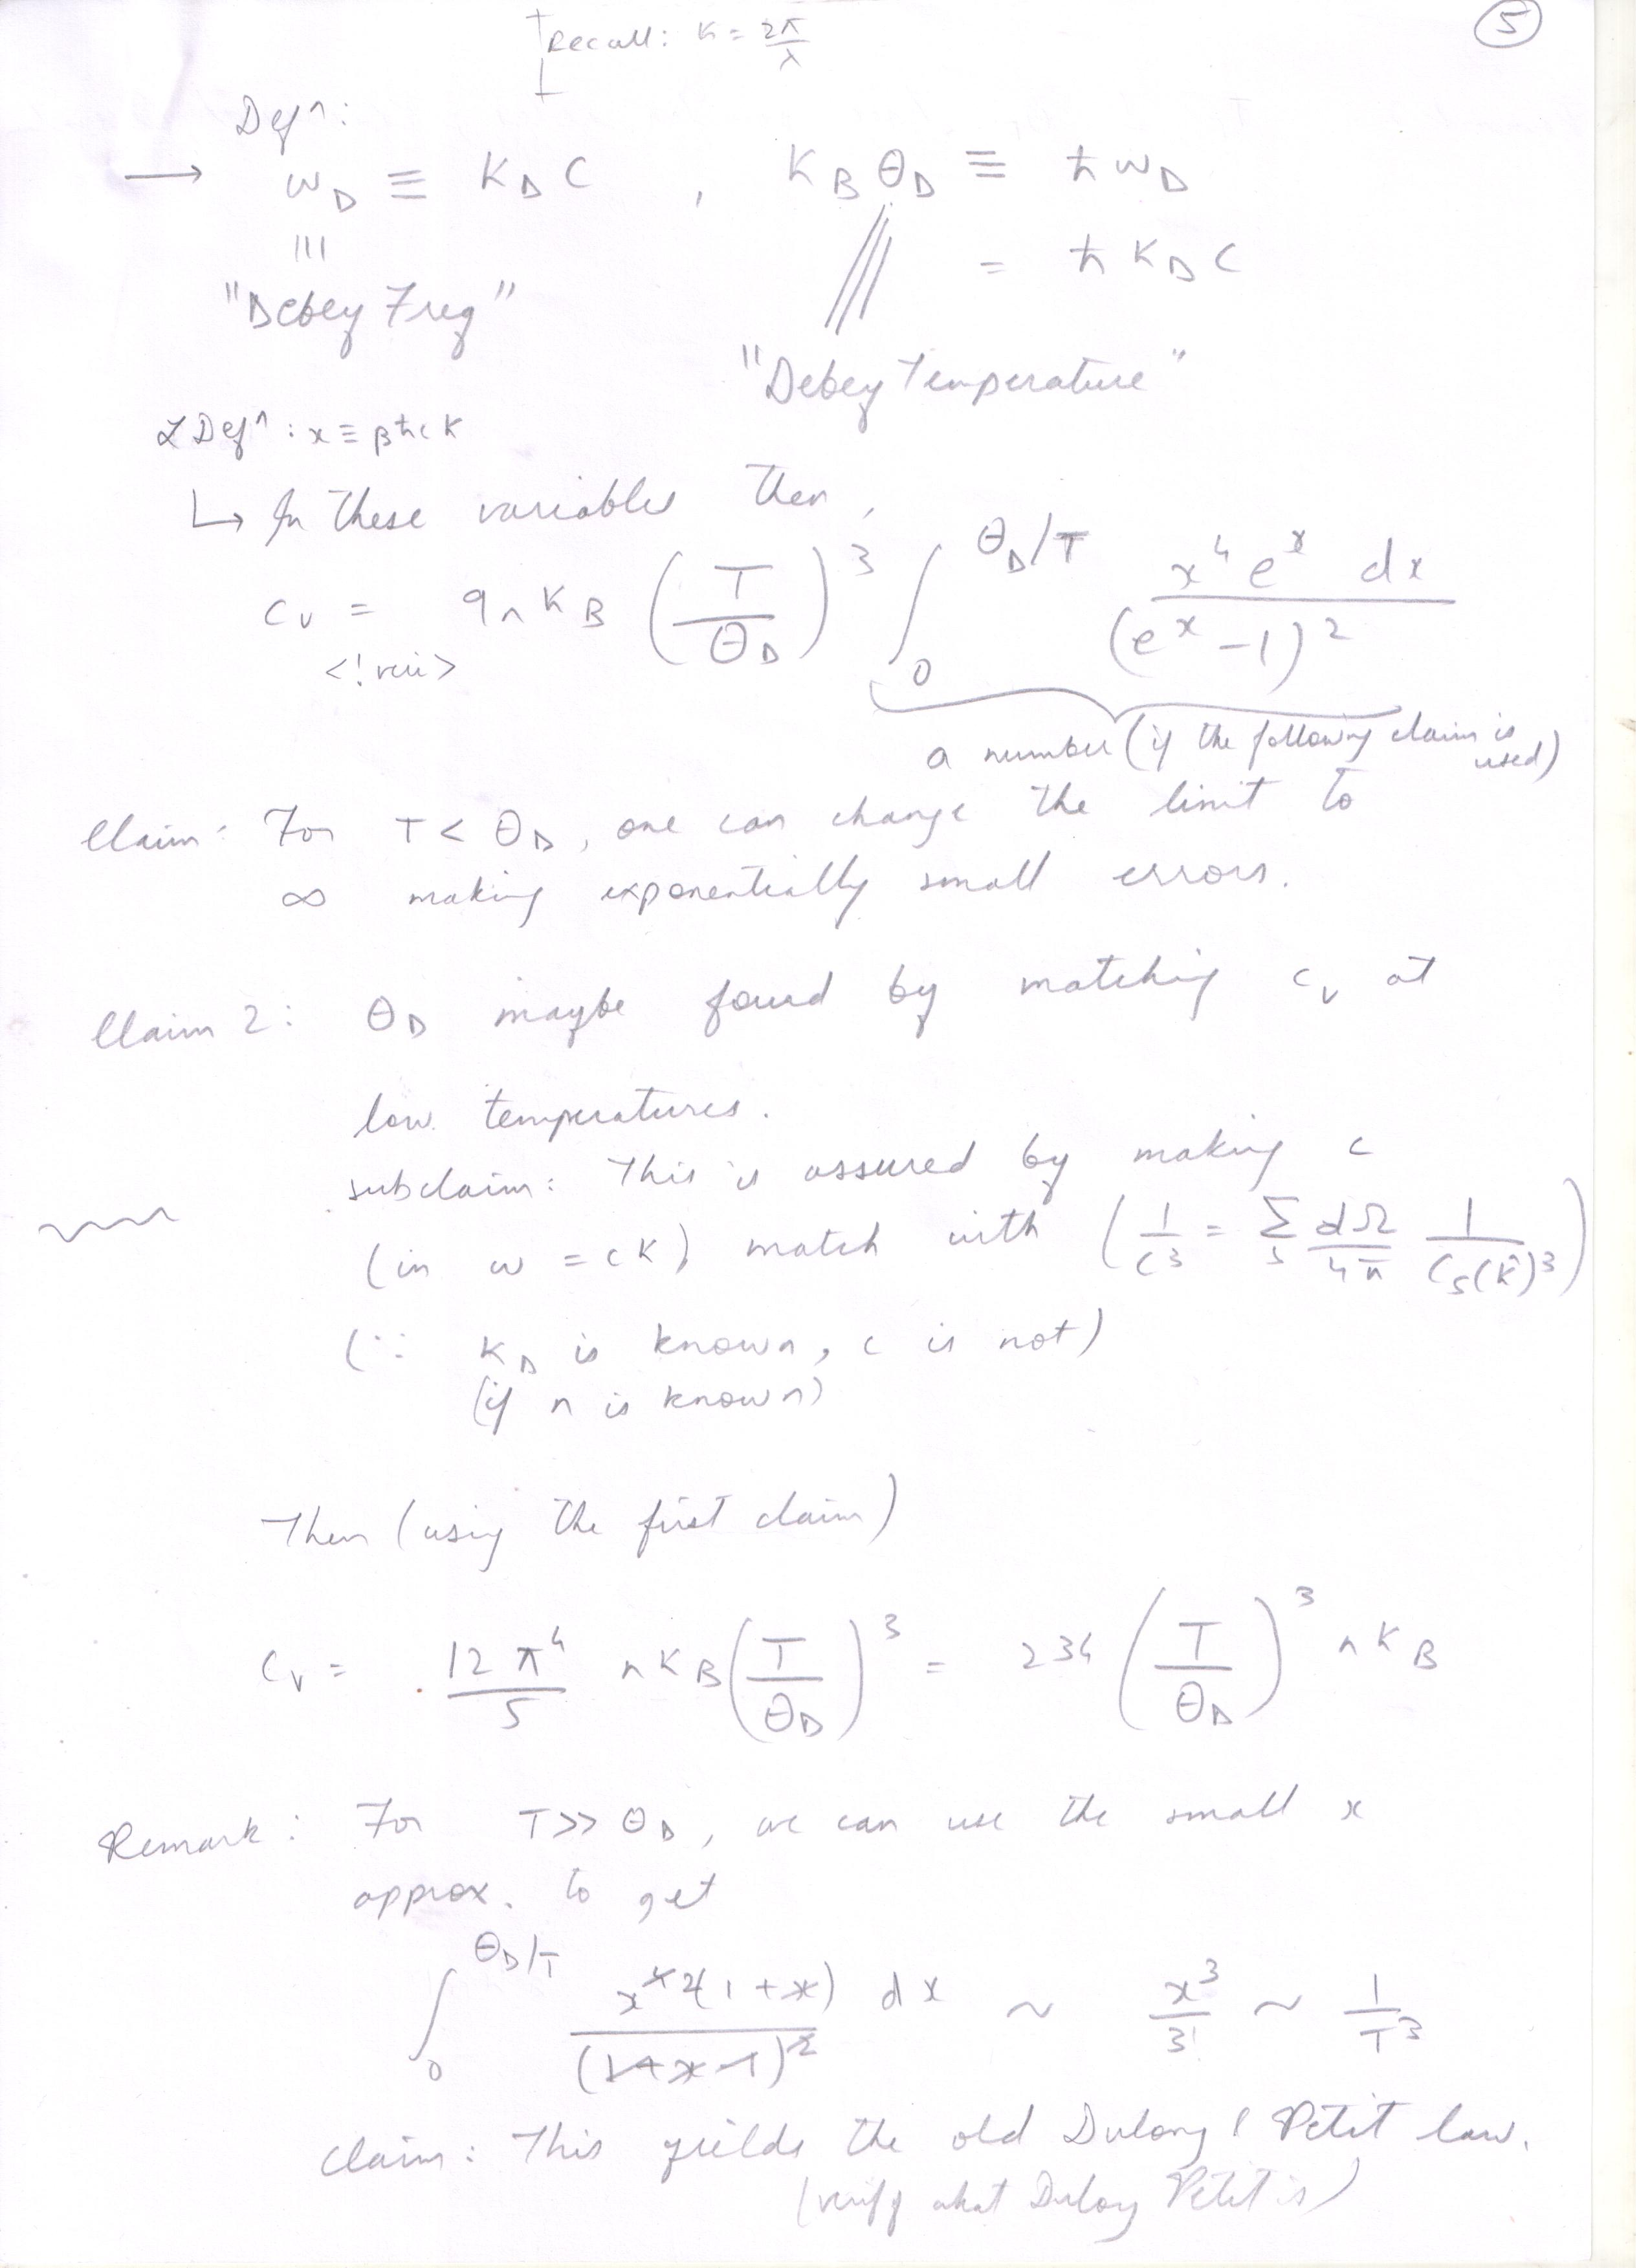 5
Recall: K = 2π/λ
Defⁿ:
→ ω_D ≡ K_D C , K_B Θ_D ≡ ħ ω_D
= ħ K_D C
"Debey Freq"
"Debey Temperature"
& Defⁿ: x ≡ βħcK
↳ In these variables then,
c_v = 9nK_B (T/Θ_D)^3 ∫_0^{Θ_D/T} x^4 e^x dx / (e^x - 1)^2
<!veri>
a number (if the following claim is used)
Claim: For T < Θ_D, one can change the limit to
∞ making exponentially small errors.
Claim 2: Θ_D maybe found by matching c_v at
low temperatures.
subclaim: This is assured by making c
(in ω = cK) match with (1/c^3 = Σ_s dΩ/4π 1/c_s(k̂)^3)
(∵ K_D is known, c is not)
(if n is known)
Then (using the first claim)
c_v = 12π^4/5 nK_B (T/Θ_D)^3 = 234 (T/Θ_D)^3 nK_B
Remark: For T >> Θ_D, we can use the small x
approx. to get
∫_0^{Θ_D/T} x^2(1+x) dx / (1+x-1)^2 ~ x^3/3! ~ 1/T^3
Claim: This yields the old Dulong & Petit law.
(verify what Dulong Petit is)